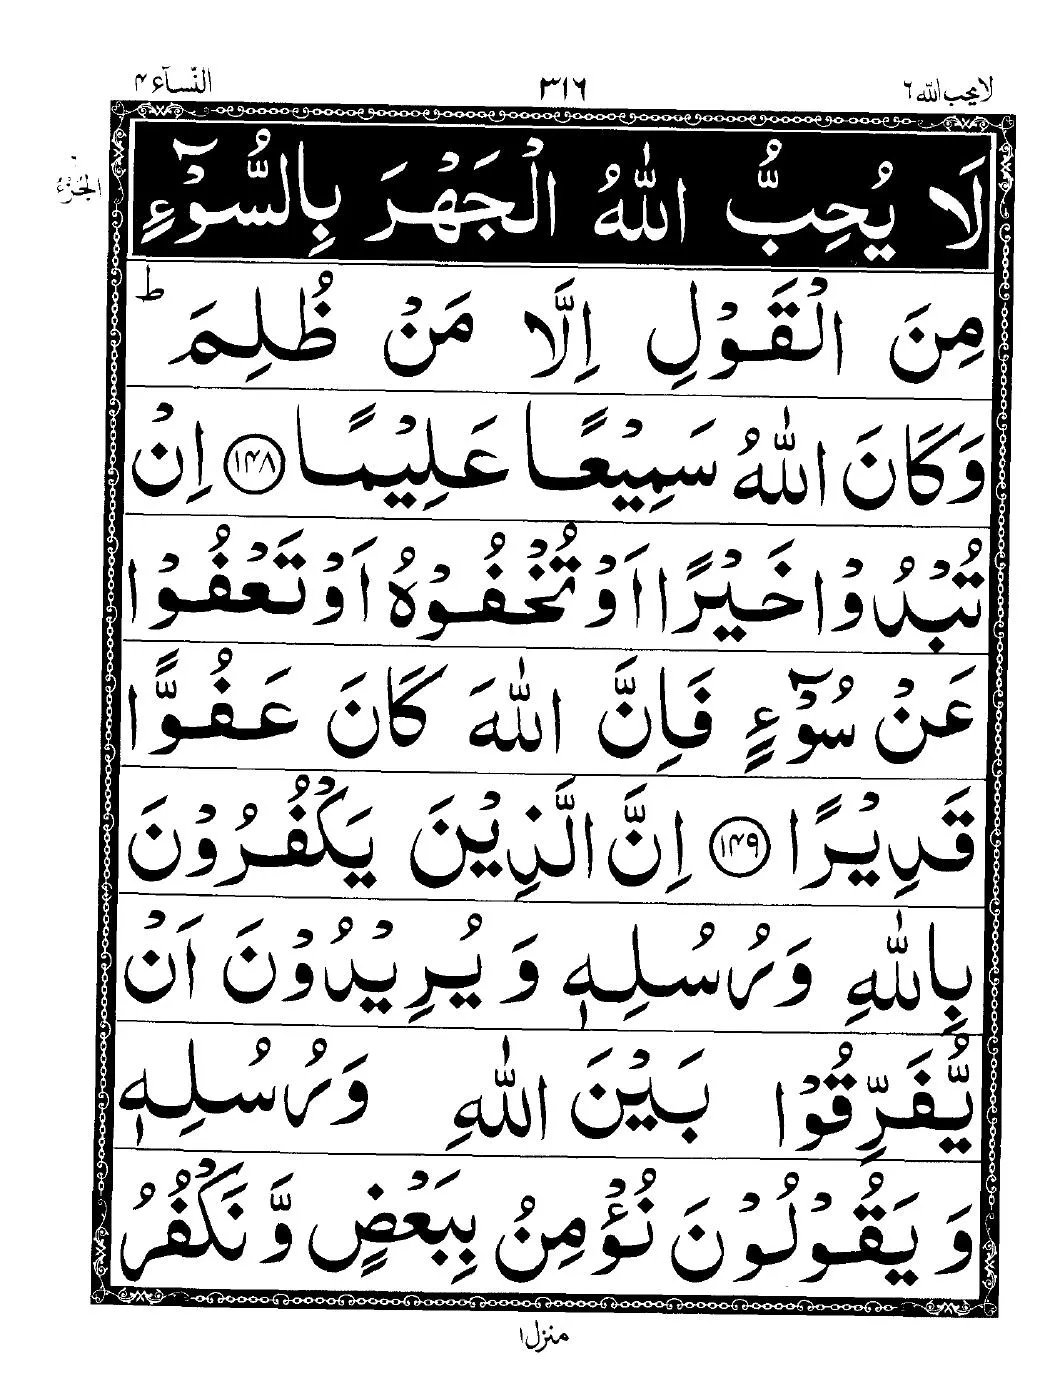 لا یحب الله ٦ ٣١٦ النّسآء ۴
الجزء ٦
لَا يُحِبُّ اللّٰهُ الْجَهْرَ بِالسُّوْٓءِ
مِنَ الْقَوْلِ اِلَّا مَنْ ظُلِمَ ؕ
وَكَانَ اللّٰهُ سَمِيْعًا عَلِيْمًا ﴿۱۴۸﴾ اِنْ
تُبْدُوْا خَيْرًا اَوْ تُخْفُوْهُ اَوْ تَعْفُوْا
عَنْ سُوْٓءٍ فَاِنَّ اللّٰهَ كَانَ عَفُوًّا
قَدِيْرًا ﴿۱۴۹﴾ اِنَّ الَّذِيْنَ يَكْفُرُوْنَ
بِاللّٰهِ وَرُسُلِهٖ وَيُرِيْدُوْنَ اَنْ
يُّفَرِّقُوْا بَيْنَ اللّٰهِ وَرُسُلِهٖ
وَيَقُوْلُوْنَ نُؤْمِنُ بِبَعْضٍ وَّنَكْفُرُ
منزل ۱